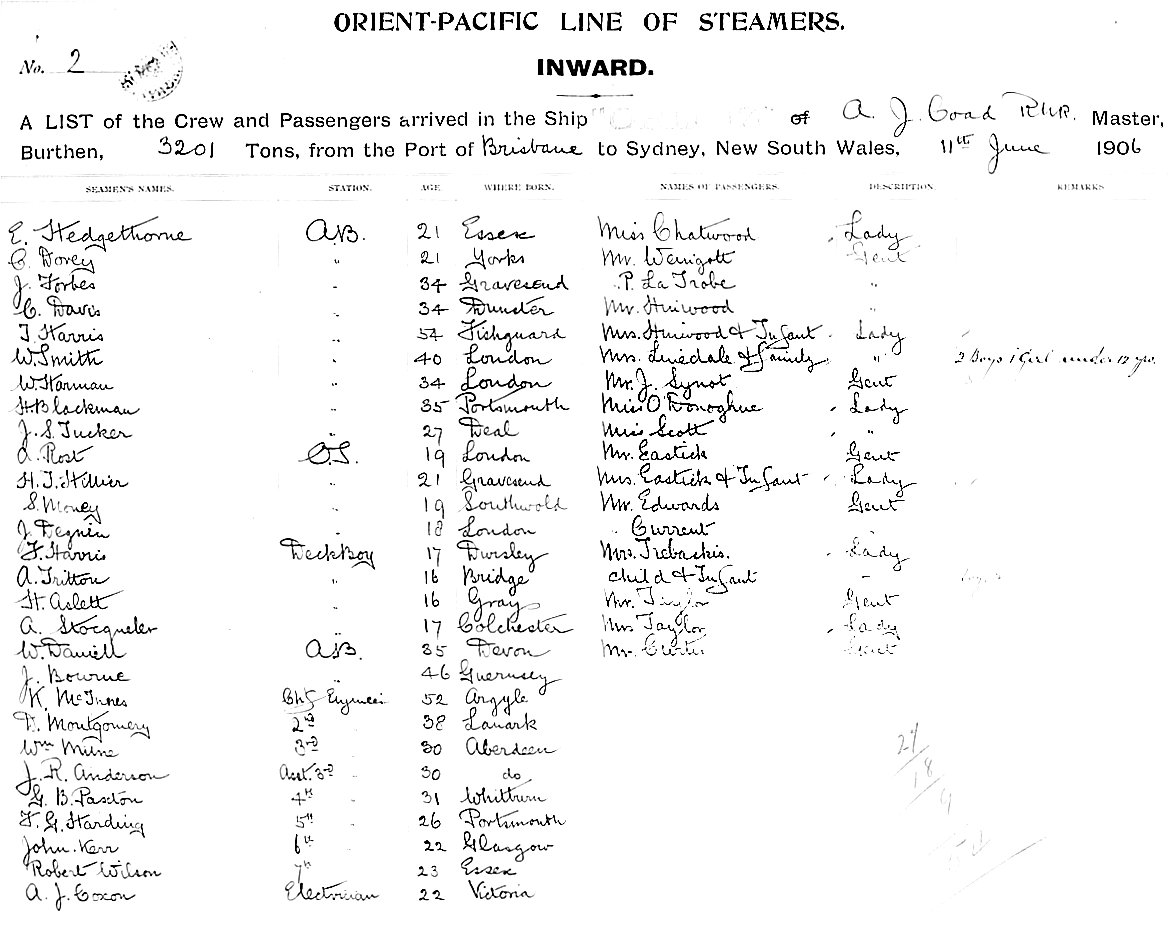 ORIENT-PACIFIC LINE OF STEAMERS.
No. 2
INWARD.
A LIST of the Crew and Passengers arrived in the Ship of A. J. Coad R.N.R. Master,
Burthen, 3201 Tons, from the Port of Brisbane to Sydney, New South Wales, 11th June 1906
SEAMEN'S NAMES. STATION. AGE WHERE BORN. NAMES OF PASSENGERS. DESCRIPTION. REMARKS
E. Hedgethorne A.B. 21 Essex Miss Chatwood Lady
C. Dovey " 21 Yorks Mr. Gent
J. Forbes " 34 Gravesend " P. La Trobe "
C. Davis " 34 Dunster Mr. Hinwood "
T. Harris " 54 Fishguard Mrs. Hinwood & Infant Lady
W. Smith " 40 London Mrs. Linedale & Family " 2 Boys 1 Girl under 12 yrs.
W. Harman " 34 London Mr. J. Synot Gent
H. Blackman " 35 Portsmouth Miss O'Donoghue Lady
J. S. Tucker " 27 Deal Miss Scott "
A. Rost O.S. 19 London Mr. Eastick Gent
H. J. Hillier " 21 Gravesend Mrs. Eastick & Infant Lady
S. Money " 19 Southwold Mr. Edwards Gent
J. Degnin " 18 London " Current "
F. Harris Deck Boy 17 Dursley Mrs. Trebaskis. Lady
A. Tritton " 16 Bridge child & Infant "
H. Aslett " 16 Gray Mr. Taylor Gent
A. Stocqueler " 17 Colchester Mrs Taylor Lady
W. Daniell A.B. 35 Devon Mr. Curtis Gent
J. Bourne " 46 Guernsey
K. McInnes Chf Engineer 52 Argyle
D. Montgomery 2nd " 38 Lanark
Wm Milne 3rd " 30 Aberdeen
J. R. Anderson Asst. 3rd " 30 do
G. B. Paxton 4th " 31 Whitburn
F. G. Harding 5th " 26 Portsmouth
John Kerr 6th " 22 Glasgow
Robert Wilson 7th " 23 Essex
A. J. Coxon Electrician 22 Victoria
27
18
9